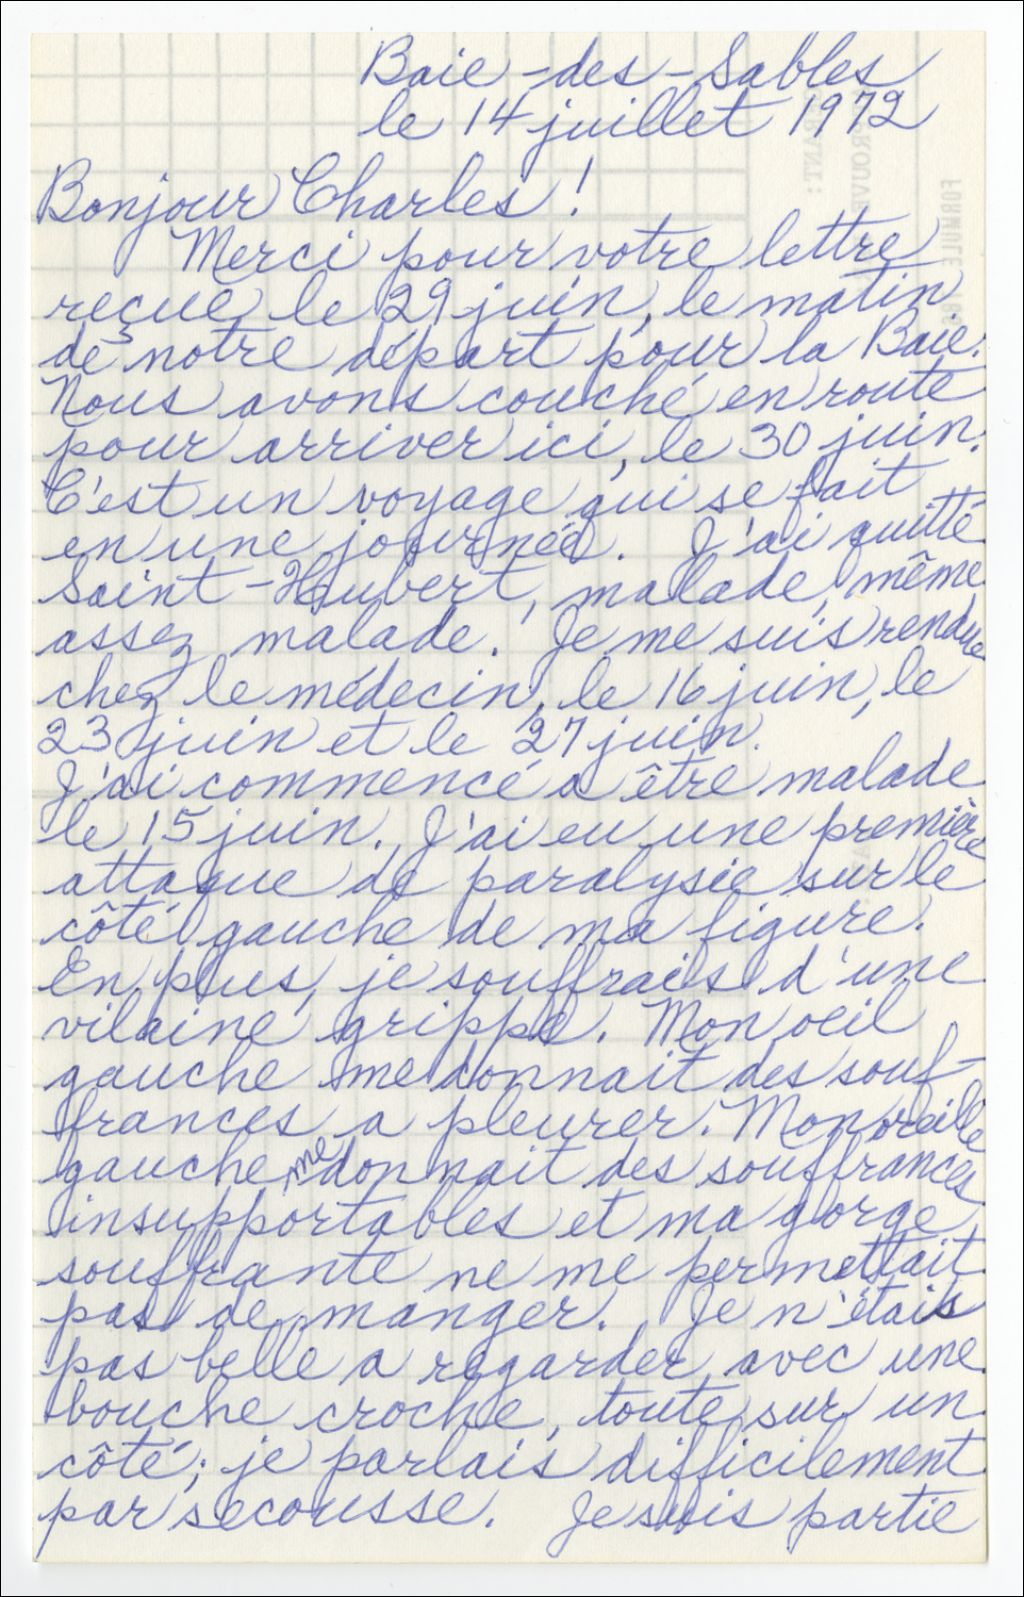 Baie-des-Sables
le 14 juillet 1972
Bonjour Charles !
Merci pour votre lettre
reçue, le 29 juin, le matin
de notre départ pour la Baie.
Nous avons couché en route
pour arriver ici, le 30 juin.
C'est un voyage qui se fait
en une journée. J'ai quitté
Saint-Hubert, malade, même
assez malade. Je me suis rendue
chez le médecin, le 16 juin, le
23 juin et le 27 juin.
J'ai commencé a être malade
le 15 juin. J'ai eu une première
attaque de paralysie sur le
côté gauche de ma figure.
En plus, je souffrais d'une
vilaine grippe. Mon oeil
gauche me donnait des souf-
frances a pleurer. Mon oreille
gauche me donnait des souffrances
insupportables et ma gorge
souffrante ne me permettait
pas de manger. Je n'étais
pas belle a regarder, avec une
bouche croche, toute sur un
côté; je parlais difficilement
par secousse. Je suis partie